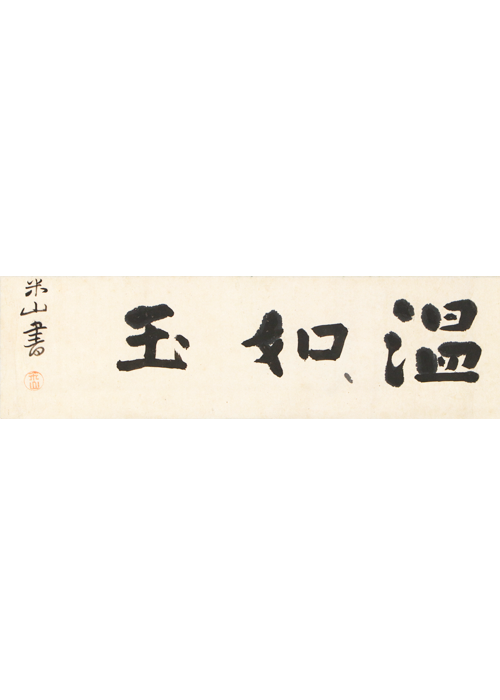 温如玉
米山書